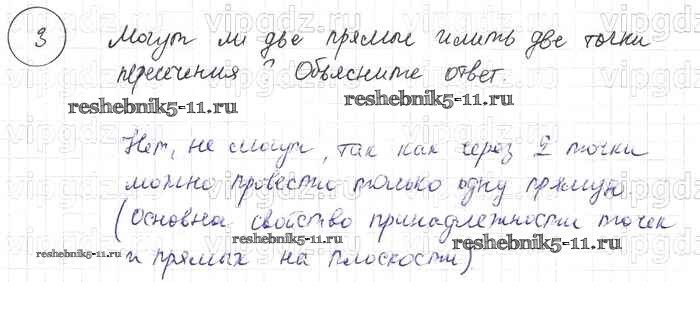 3 Могут ли две прямые иметь две точки
пересечения? Объясните ответ.
reshebnik5-11.ru reshebnik5-11.ru
Нет, не смогут, так как через 2 точки
можно провести только одну прямую.
(Основна свойство принадлежности точек
reshebnik5-11.ru reshebnik5-11.ru reshebnik5-11.ru
и прямых на плоскости)